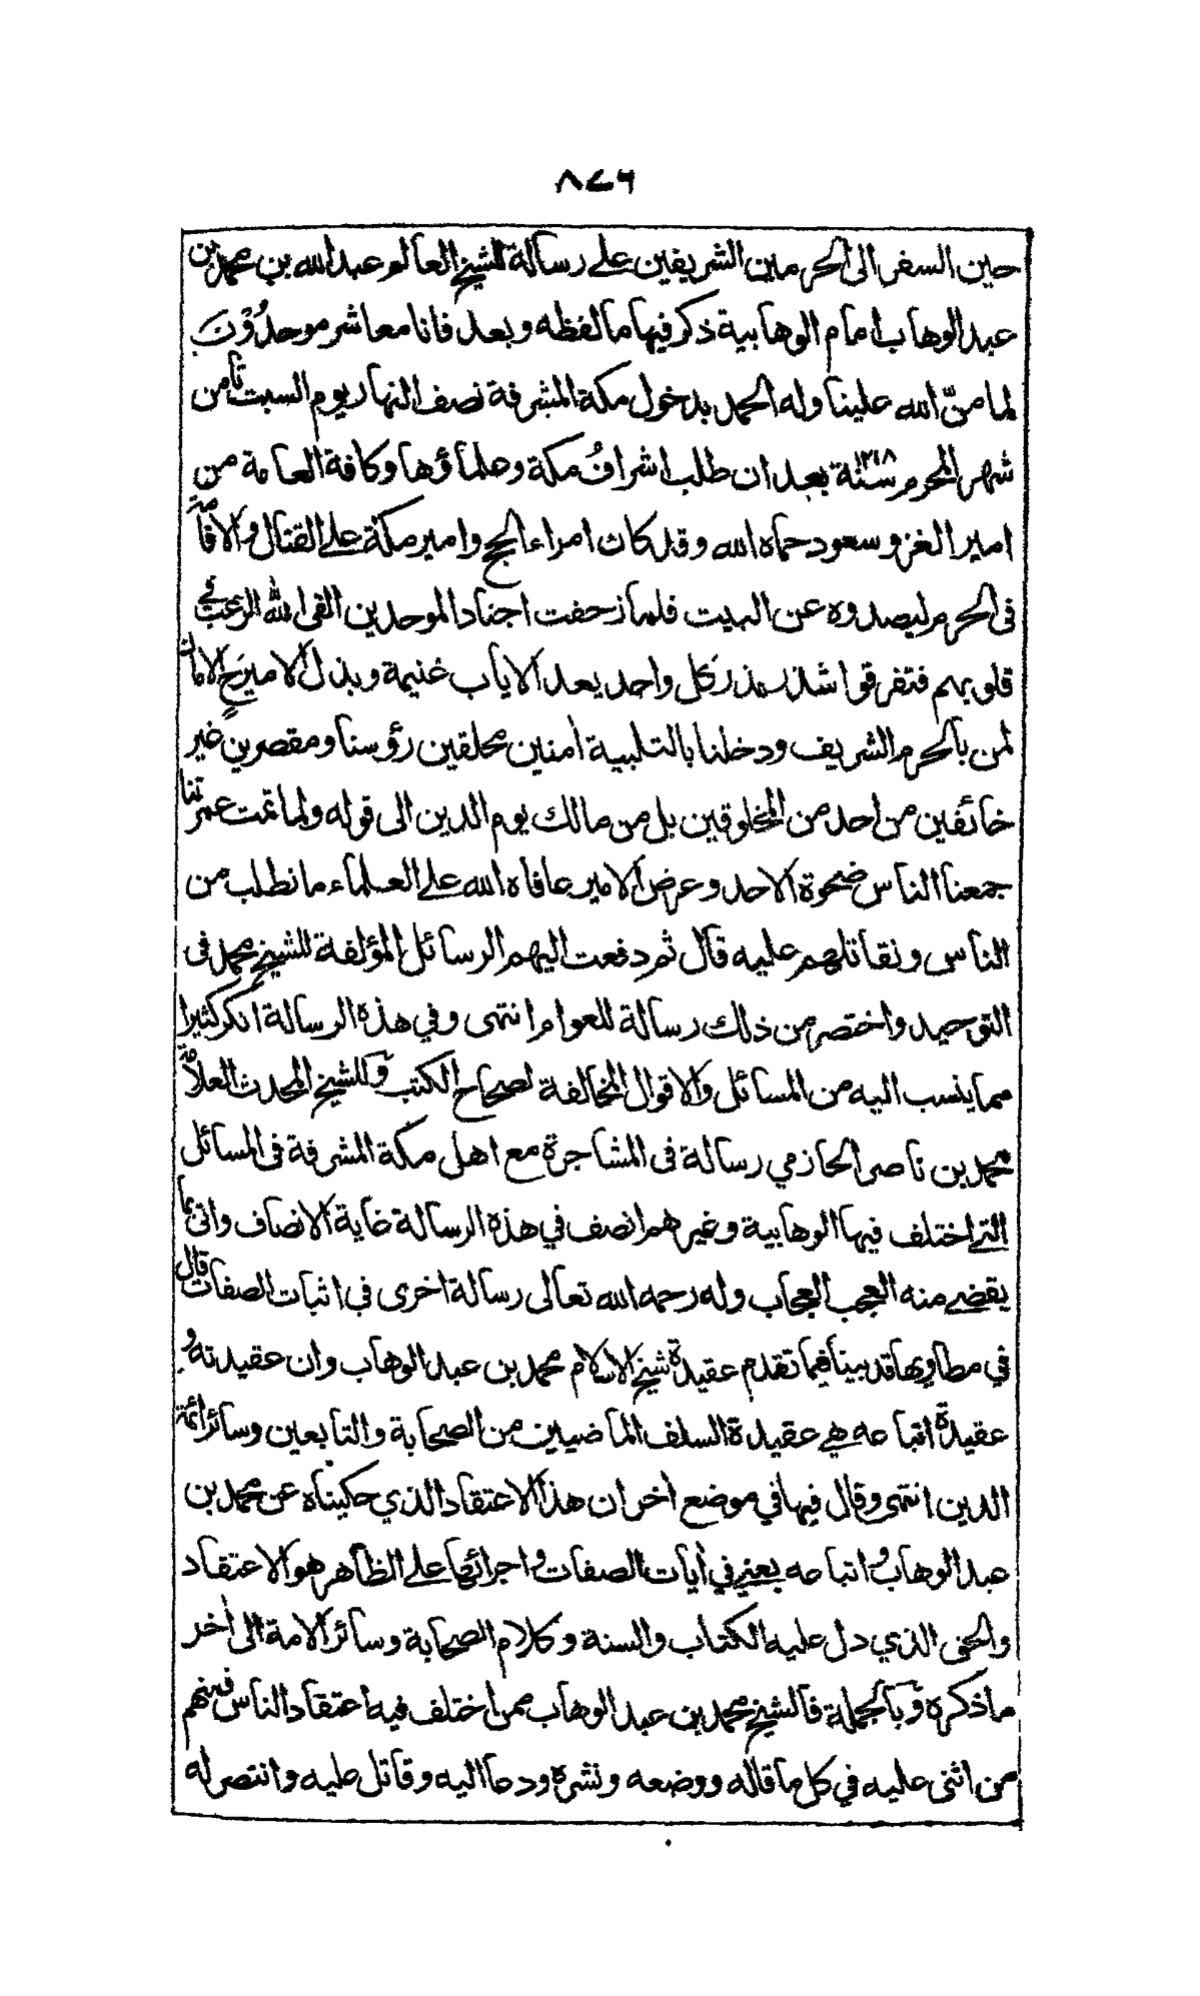 ٨٧٦
حين السفر الى الحرمين الشريفين على رسالة للشيخ العالم عبد الله بن محمد بن
عبد الوهاب امام الوهابية ذكر فيها ما لفظه وبعد فانا معاشر موحدُوْنَ
لما منّ الله علينا وله الحمد بدخول مكة المشرفة نصف النهار يوم السبت ثامن
شهر المحرم سنة ١٢١٨ بعد ان طلب اشرافُ مكة وعلماؤها وكافة العامة من
امير الغزو سعود حماه الله وقد كان امراء الحج وامير مكة على القتال والاقامة
فى الحرم ليصدوه عن البيت فلما زحفت اجناد الموحدين القى الله الرعب في
قلوبهم فتفرقوا شذر مذر كل واحد يعد الاياب غنيمة وبذل الامير ح الامان
لمن بالحرم الشريف ودخلنا بالتلبية آمنين محلقين رؤسنا ومقصرين غير
خائفين من احد من المخلوقين بل من مالك يوم الدين الى قوله ولما تمت عمرتنا
جمعنا الناس ضحوة الاحد وعرض الامير عافاه الله على العلماء ما نطلب من
الناس ونقاتلهم عليه قال ثم دفعت اليهم الرسائل المؤلفة للشيخ محمد فى
التوحيد واختصر من ذلك رسالة للعوام انتهى وفي هذه الرسالة انكر كثيرا
مما ينسب اليه من المسائل والاقوال المخالفة لصحاح الكتب وللشيخ المحدث العلامة
محمد بن ناصر الحازمي رسالة فى المشاجرة مع اهل مكة المشرفة فى المسائل
التي اختلف فيها الوهابية وغيرهم انصف في هذه الرسالة غاية الانصاف واتى بما
يقضي منه العجب العجاب وله رحمه الله تعالى رسالة اخرى في اثبات الصفات قال
في مطاويها قد بينا فيما تقدم عقيدة شيخ الاسلام محمد بن عبد الوهاب وان عقيدته و
عقيدة اتباعه هي عقيدة السلف الماضيين من الصحابة والتابعين وسائر ائمة
الدين انتهى وقال فيها في موضع آخر ان هذا الاعتقاد الذي حكيناه عن محمد بن
عبد الوهاب واتباعه يعني في آيات الصفات واجرائها على الظاهر هو الاعتقاد
والحق الذي دل عليه الكتاب والسنة وكلام الصحابة وسائر الامة الى آخر
ما ذكره وبالجملة فالشيخ محمد بن عبد الوهاب ممن اختلف فيه اعتقاد الناس فمنهم
من اثنى عليه في كل ما قاله ووضعه ونشره ودعا اليه وقاتل عليه وانتصر له